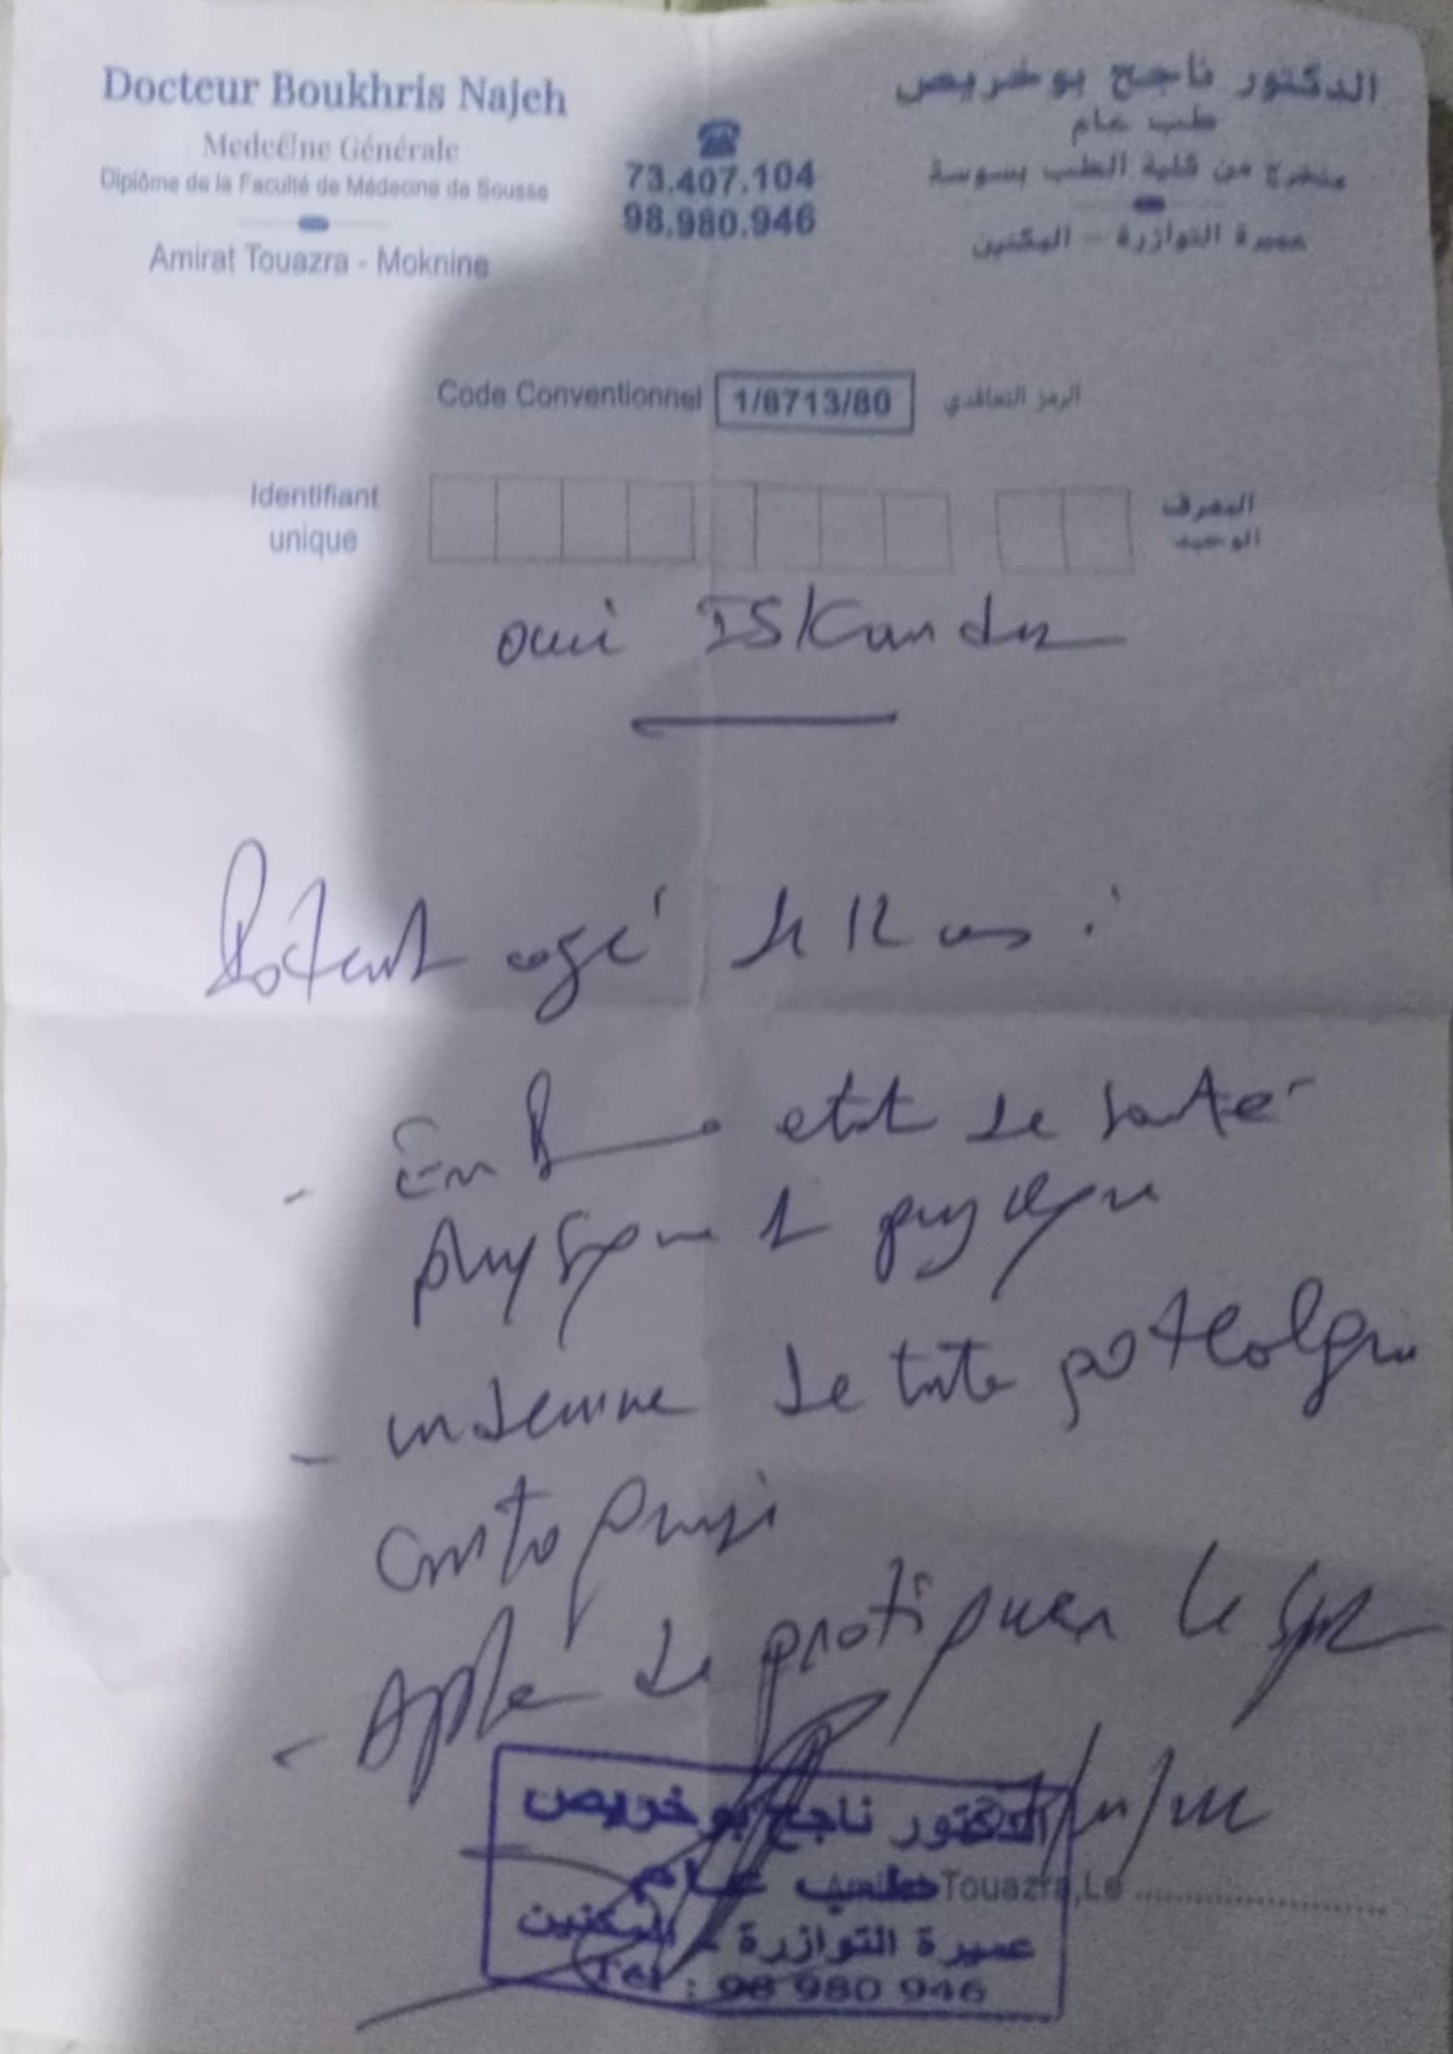 Docteur Boukhris Najeh
Medecine Générale
Diplôme de la Faculté de Médecine de Sousse
Amirat Touazra - Moknine
73.407.104
98.980.946
الدكتور ناجح بوخريص
طب عام
متخرج من كلية الطب بسوسة
عميرة التوازرة - المكنين
Code Conventionnel 1/8713/80 الرمز التعاقدي
Identifiant unique
المعرف الوحيد
ISKander
Patient agé de 12 ans :
- En etat de santé
physique et psychique
- indemne de toute pathologie
contagieuse
- Apte de pratiquer le sport
الدكتور ناجح بوخريص
طب عام
عميرة التوازرة - المكنين
Tel : 98 980 946
Touazra, Le